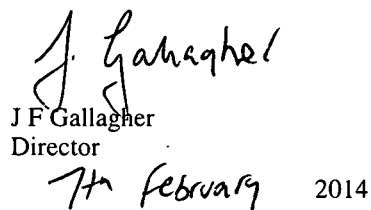 J. Gallagher
J F Gallagher
Director
7th February 2014